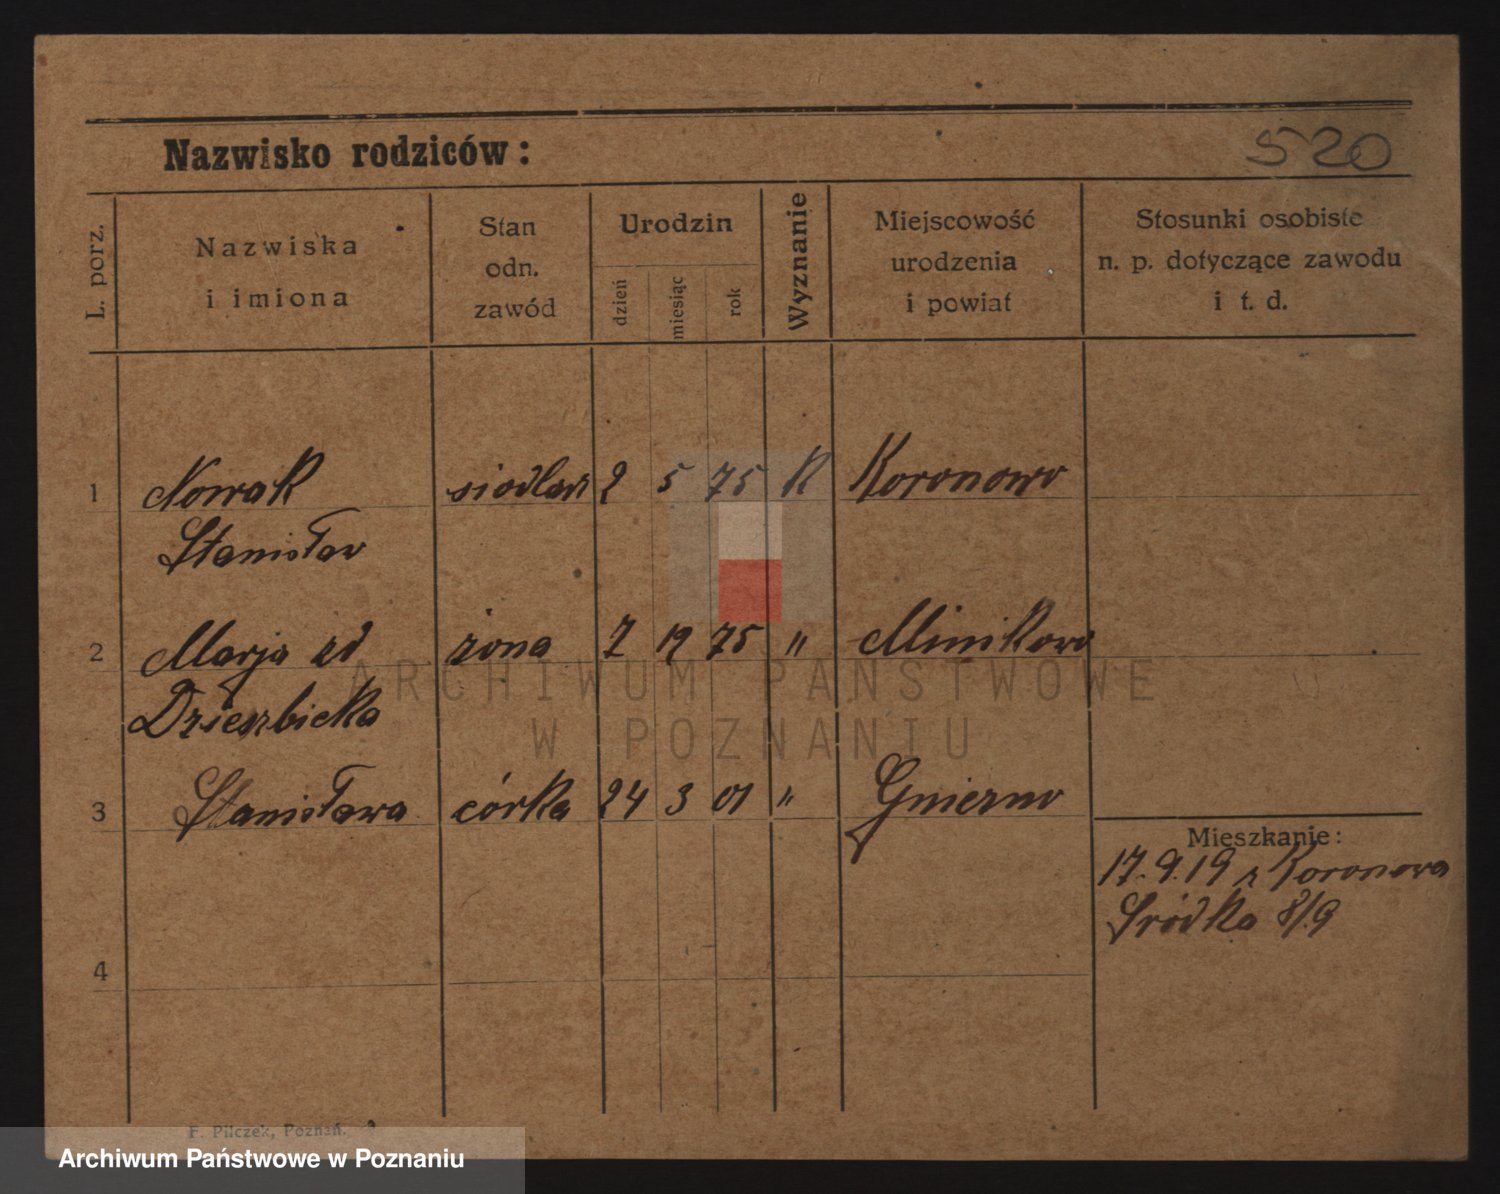 Nazwisko rodziców:
520
L. porz.
Nazwiska
i imiona
Stan
odn.
zawód
Urodzin
dzień
miesiąc
rok
Wyznanie
Miejscowość
urodzenia
i powiat
Stosunki osobiste
n. p. dotyczące zawodu
i t. d.
1 Nowak siodlarz 2 5 75 K Koronowo
Stanisław
2 Marja zd żona 7 12 75 " Minikowo
3 Stanisława córka 24 3 01 " Gniezno
Mieszkanie:
17.9.19 z Koronowa
Śródka 8/9
4
F. Pilczek, Poznań.
ARCHIWUM PAŃSTWOWE
W POZNANIU
Archiwum Państwowe w Poznaniu